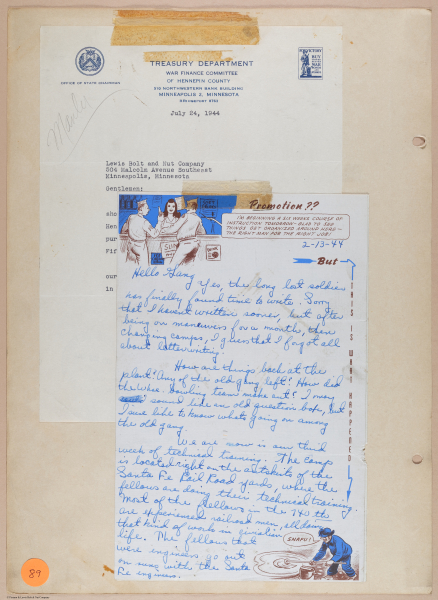 OFFICE OF STATE CHAIRMAN
TREASURY DEPARTMENT
WAR FINANCE COMMITTEE
OF HENNEPIN COUNTY
510 NORTHWESTERN BANK BUILDING
MINNEAPOLIS 2, MINNESOTA
July 24, 1944
Lewis Bolt and Nut Company
504 Malcolm Avenue Southeast
Minneapolis, Minnesota
Gentlemen:
sho
Hen
pur
Fif
our
in
Promotion??
I'M BEGINNING A SIX WEEKS COURSE OF
INSTRUCTION TOMORROW—GLAD TO SEE
THINGS GET ORGANIZED AROUND HERE—
THE RIGHT MAN FOR THE RIGHT JOB!
2-13-44
But
THIS IS WHAT HAPPENED
Hello Gang
Yes, the long lost soldier
has finally found time to write. Sorry
that I havent written sooner, but after
being on maneuvers for a month, then
changing camps, I guess that I forgot all
about letterwriting.
How are things back at the
plant? Any of the old gang left? How did
the Whse. bowling team make out? I may
sound like an old question box, but
I sure like to know whats going on among
the old gang.
We are now in our third
week of technical training. The camp
is located right on the outskirts of the
Santa Fe Rail Road yards, where the
fellows are doing their technical training.
Most of the fellows in the 740th
are experienced railroad men, all done
that kind of work in civilian
life. The fellows that
were engineers go out
on runs with the Santa
Fe engineers.
SNAFU!
89